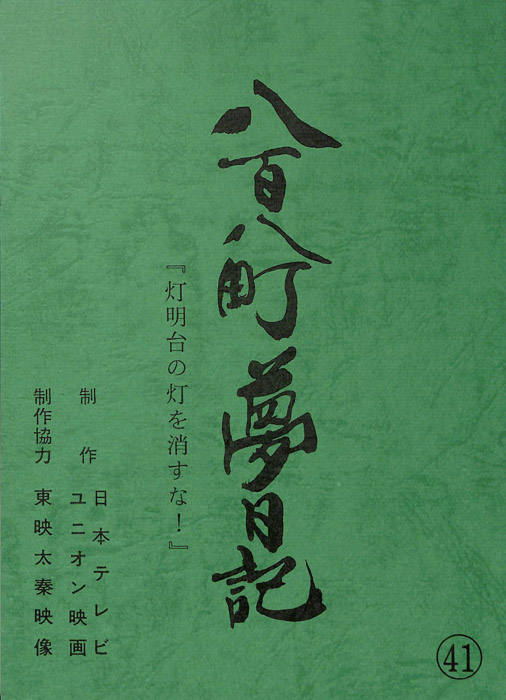 八百八町夢日記
『灯明台の灯を消すな！』
制作
日本テレビ
ユニオン映画
制作協力 東映太秦映像
41